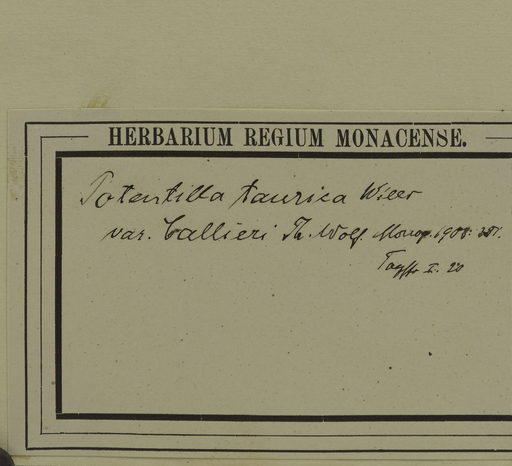 HERBARIUM REGIUM MONACENSE.
Potentilla taurica Willd
var. Callieri Th. Wolf. Monogr. 1908:
II. 20